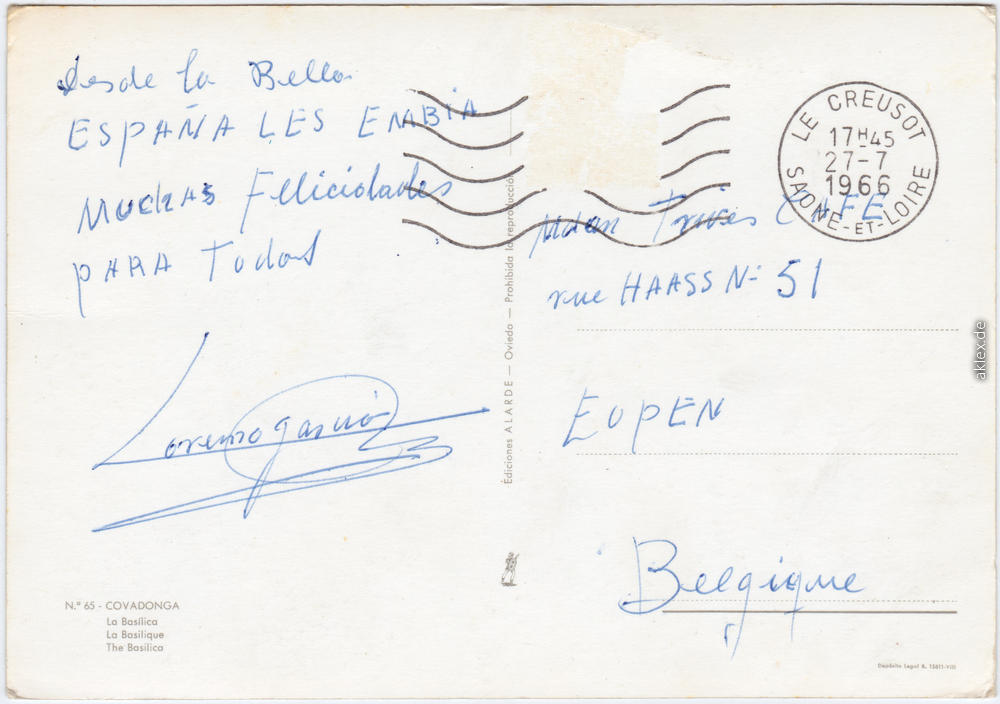 Desde la Bella
ESPAÑA LES EMBIA
MUCHAS Feliciolades
PARA Todos
Lorenzo García
N.º 65 - COVADONGA
La Basílica
La Basilique
The Basilica
Ediciones ALARDE — Oviedo — Prohibida la reproducción
LE CREUSOT
17H45
27-7
1966
SAONE-ET-LOIRE
CAFE
rue HAASS Nº 51
EUPEN
Belgique
Depósito Legal B. 15611-VIII
aklex.de